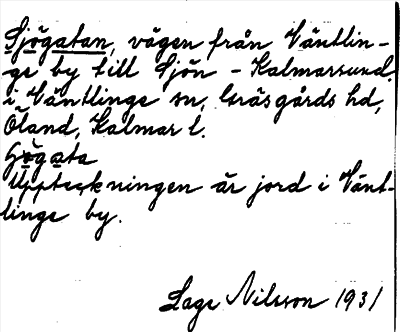 Sjögatan, vägen från Väntlin-
ge by till Sjön - Kalmarsund.
i Väntlinge sn, Gräsgårds hd,
Öland, Kalmar l.
Sjögata
Uppteckningen är jord i Vänt-
linge by.
Lage Nilsson 1931